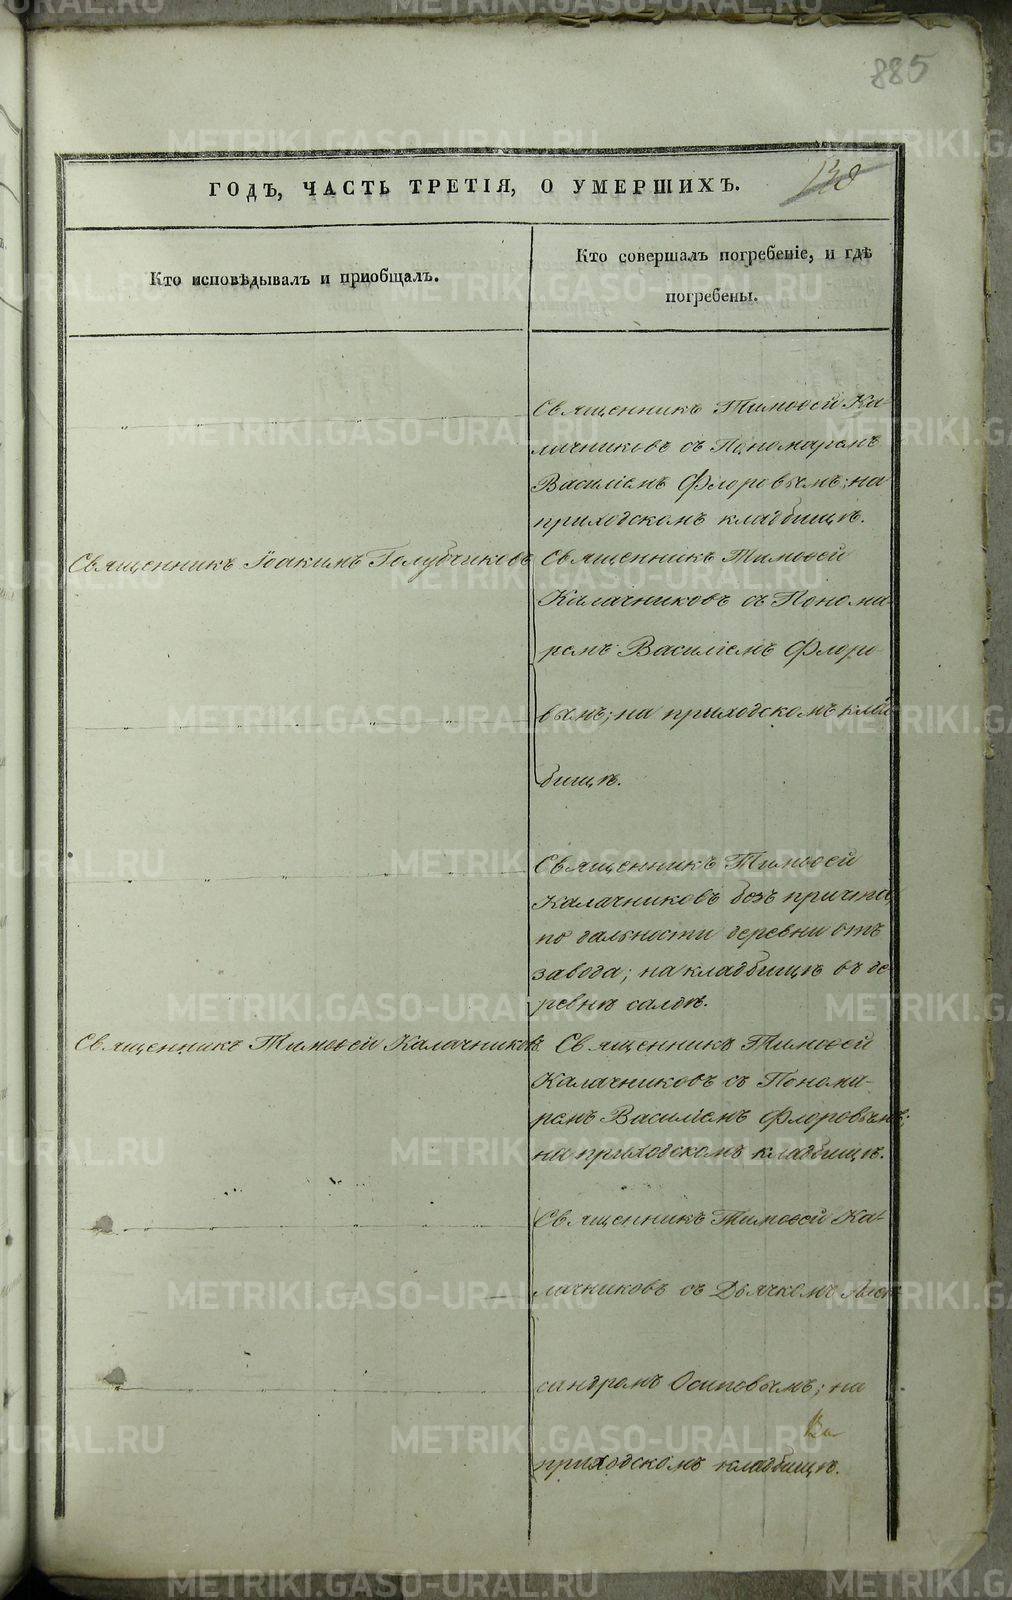 885
138
ГОДЪ, ЧАСТЬ ТРЕТІЯ, О УМЕРШИХЪ.
Кто исповѣдывалъ и пріобщалъ.
Кто совершалъ погребеніе, и гдѣ
погребены.
Священникъ Тимоѳей Ка-
лачниковъ съ Пономаремъ
Василіемъ Флоровымъ; на
приходскомъ кладбищѣ.
Священникъ Іоакимъ Голубчиковъ
Священникъ Тимоѳей
Калачниковъ съ Понома-
ремъ Василіемъ Флоро-
вымъ; на приходскомъ клад-
бищѣ.
Священникъ Тимоѳей
Калачниковъ безъ причта,
по дальности деревни отъ
завода; на кладбищѣ въ де-
ревнѣ салдѣ.
Священникъ Тимоѳей Калачниковъ
Священникъ Тимоѳей
Калачниковъ съ Понома-
ремъ Василіемъ Флоровымъ;
на приходскомъ кладбищѣ.
Священникъ Тимоѳей Ка-
лачниковъ съ Дьячкомъ Алек-
сандромъ Осиповымъ; на
приходскомъ кладбищѣ.
METRIKI.GASO-URAL.RU